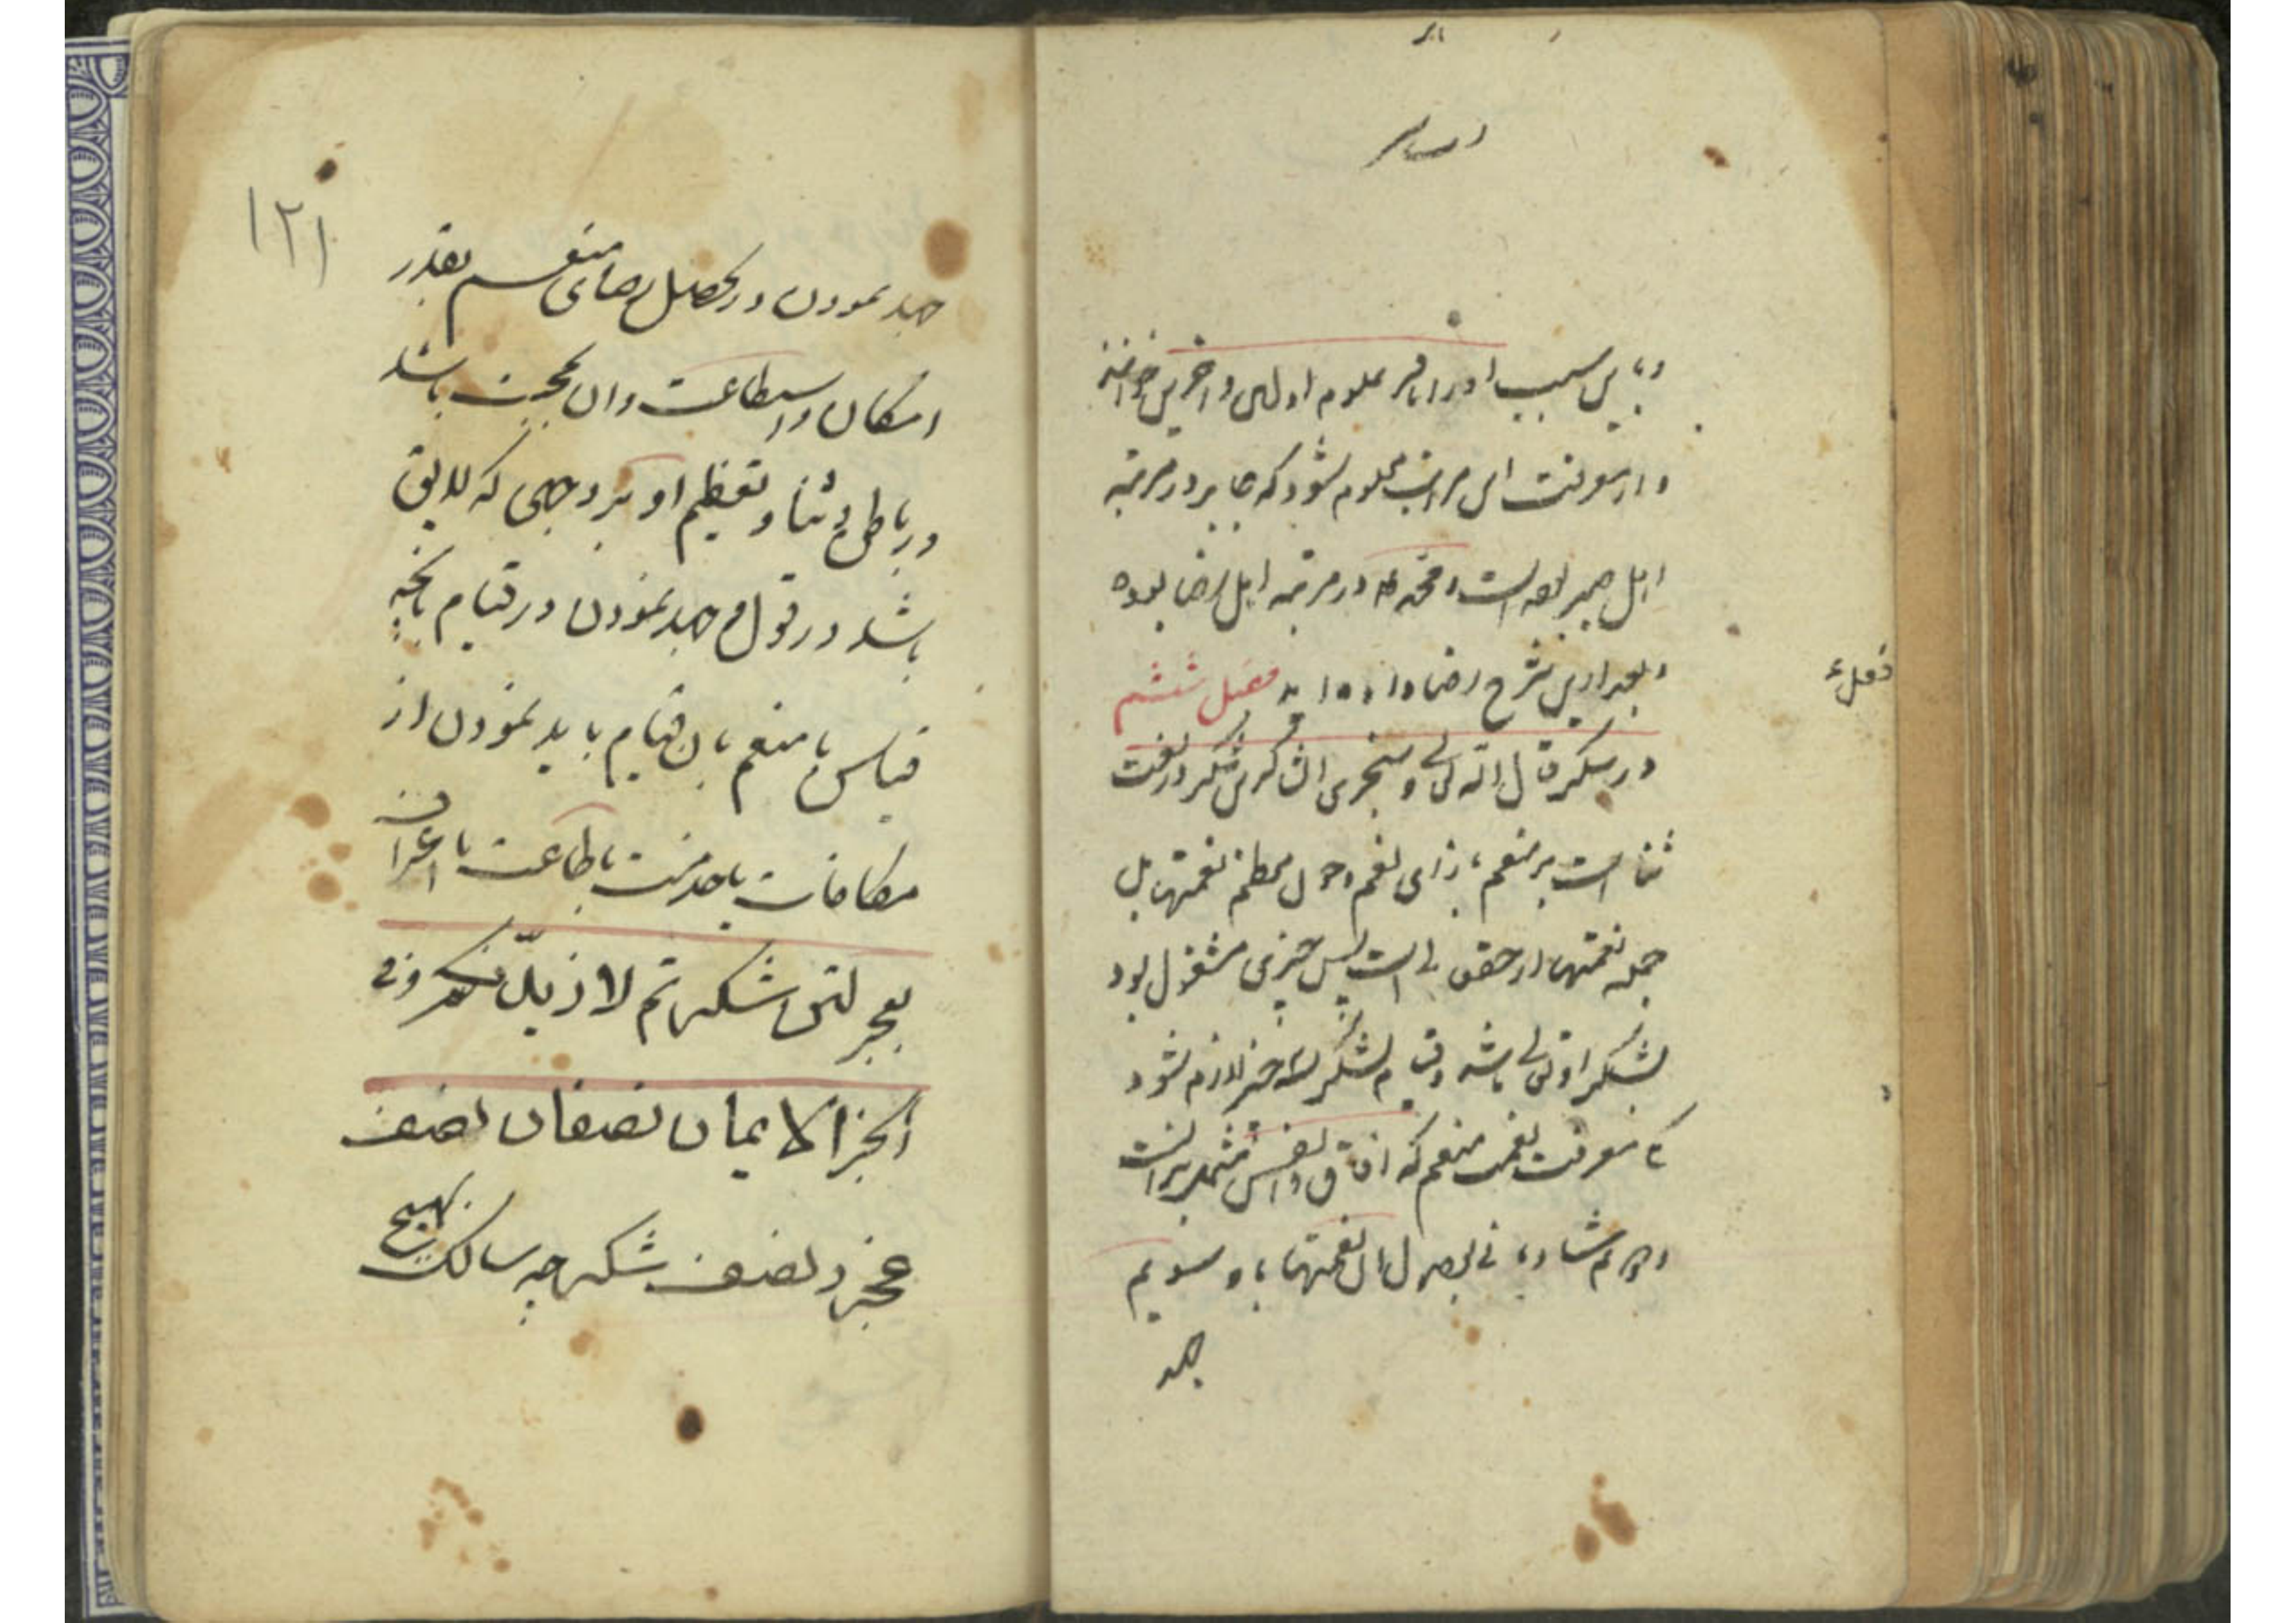 و باین سبب او را باقر علوم اولین و آخرین خوانند
و از معرفت این مراتب معلوم شود که جابر در مرتبه
اهل صبر بوده است و محمد در مرتبه اهل رضا بوده
و بعد ازین شرح رضا داده اید فصل ششم
در شکر قال الله تعالی و سنجزی الشاکرین شکر در لغت
ثنا است بر منعم بازای نعم و چون معظم نعمتها بل
جمله نعمتها از حق تعالی است پس بهترین چیزی مشغول بود
بشکر او تعالی باشد و قیام بشکر بسه چیز لازم شود
معرفت نعمت منعم که آفاق و انفس مشتمل بر آنست
شادمانی بوصول آن نعمتها باو سیوم
جهد
فعل
۱۲۱
جهد نمودن در تحصیل رضای منعم بقدر
امکان و استطاعت و آن بمحبت باشد
در باطن و ثنا و تعظیم او بر وجهی که لایق
باشد در قول و جهد نمودن در قیام بآنچه
قیاس با منعم بآن قیام باید نمودن از
مکافات یا خدمت یا طاعت یا اعتراف
بعجز لئن شکرتم لازیدنکم و فی
الخبر الایمان نصفان نصف
صبر و نصف شکر چه سالک بهیچ